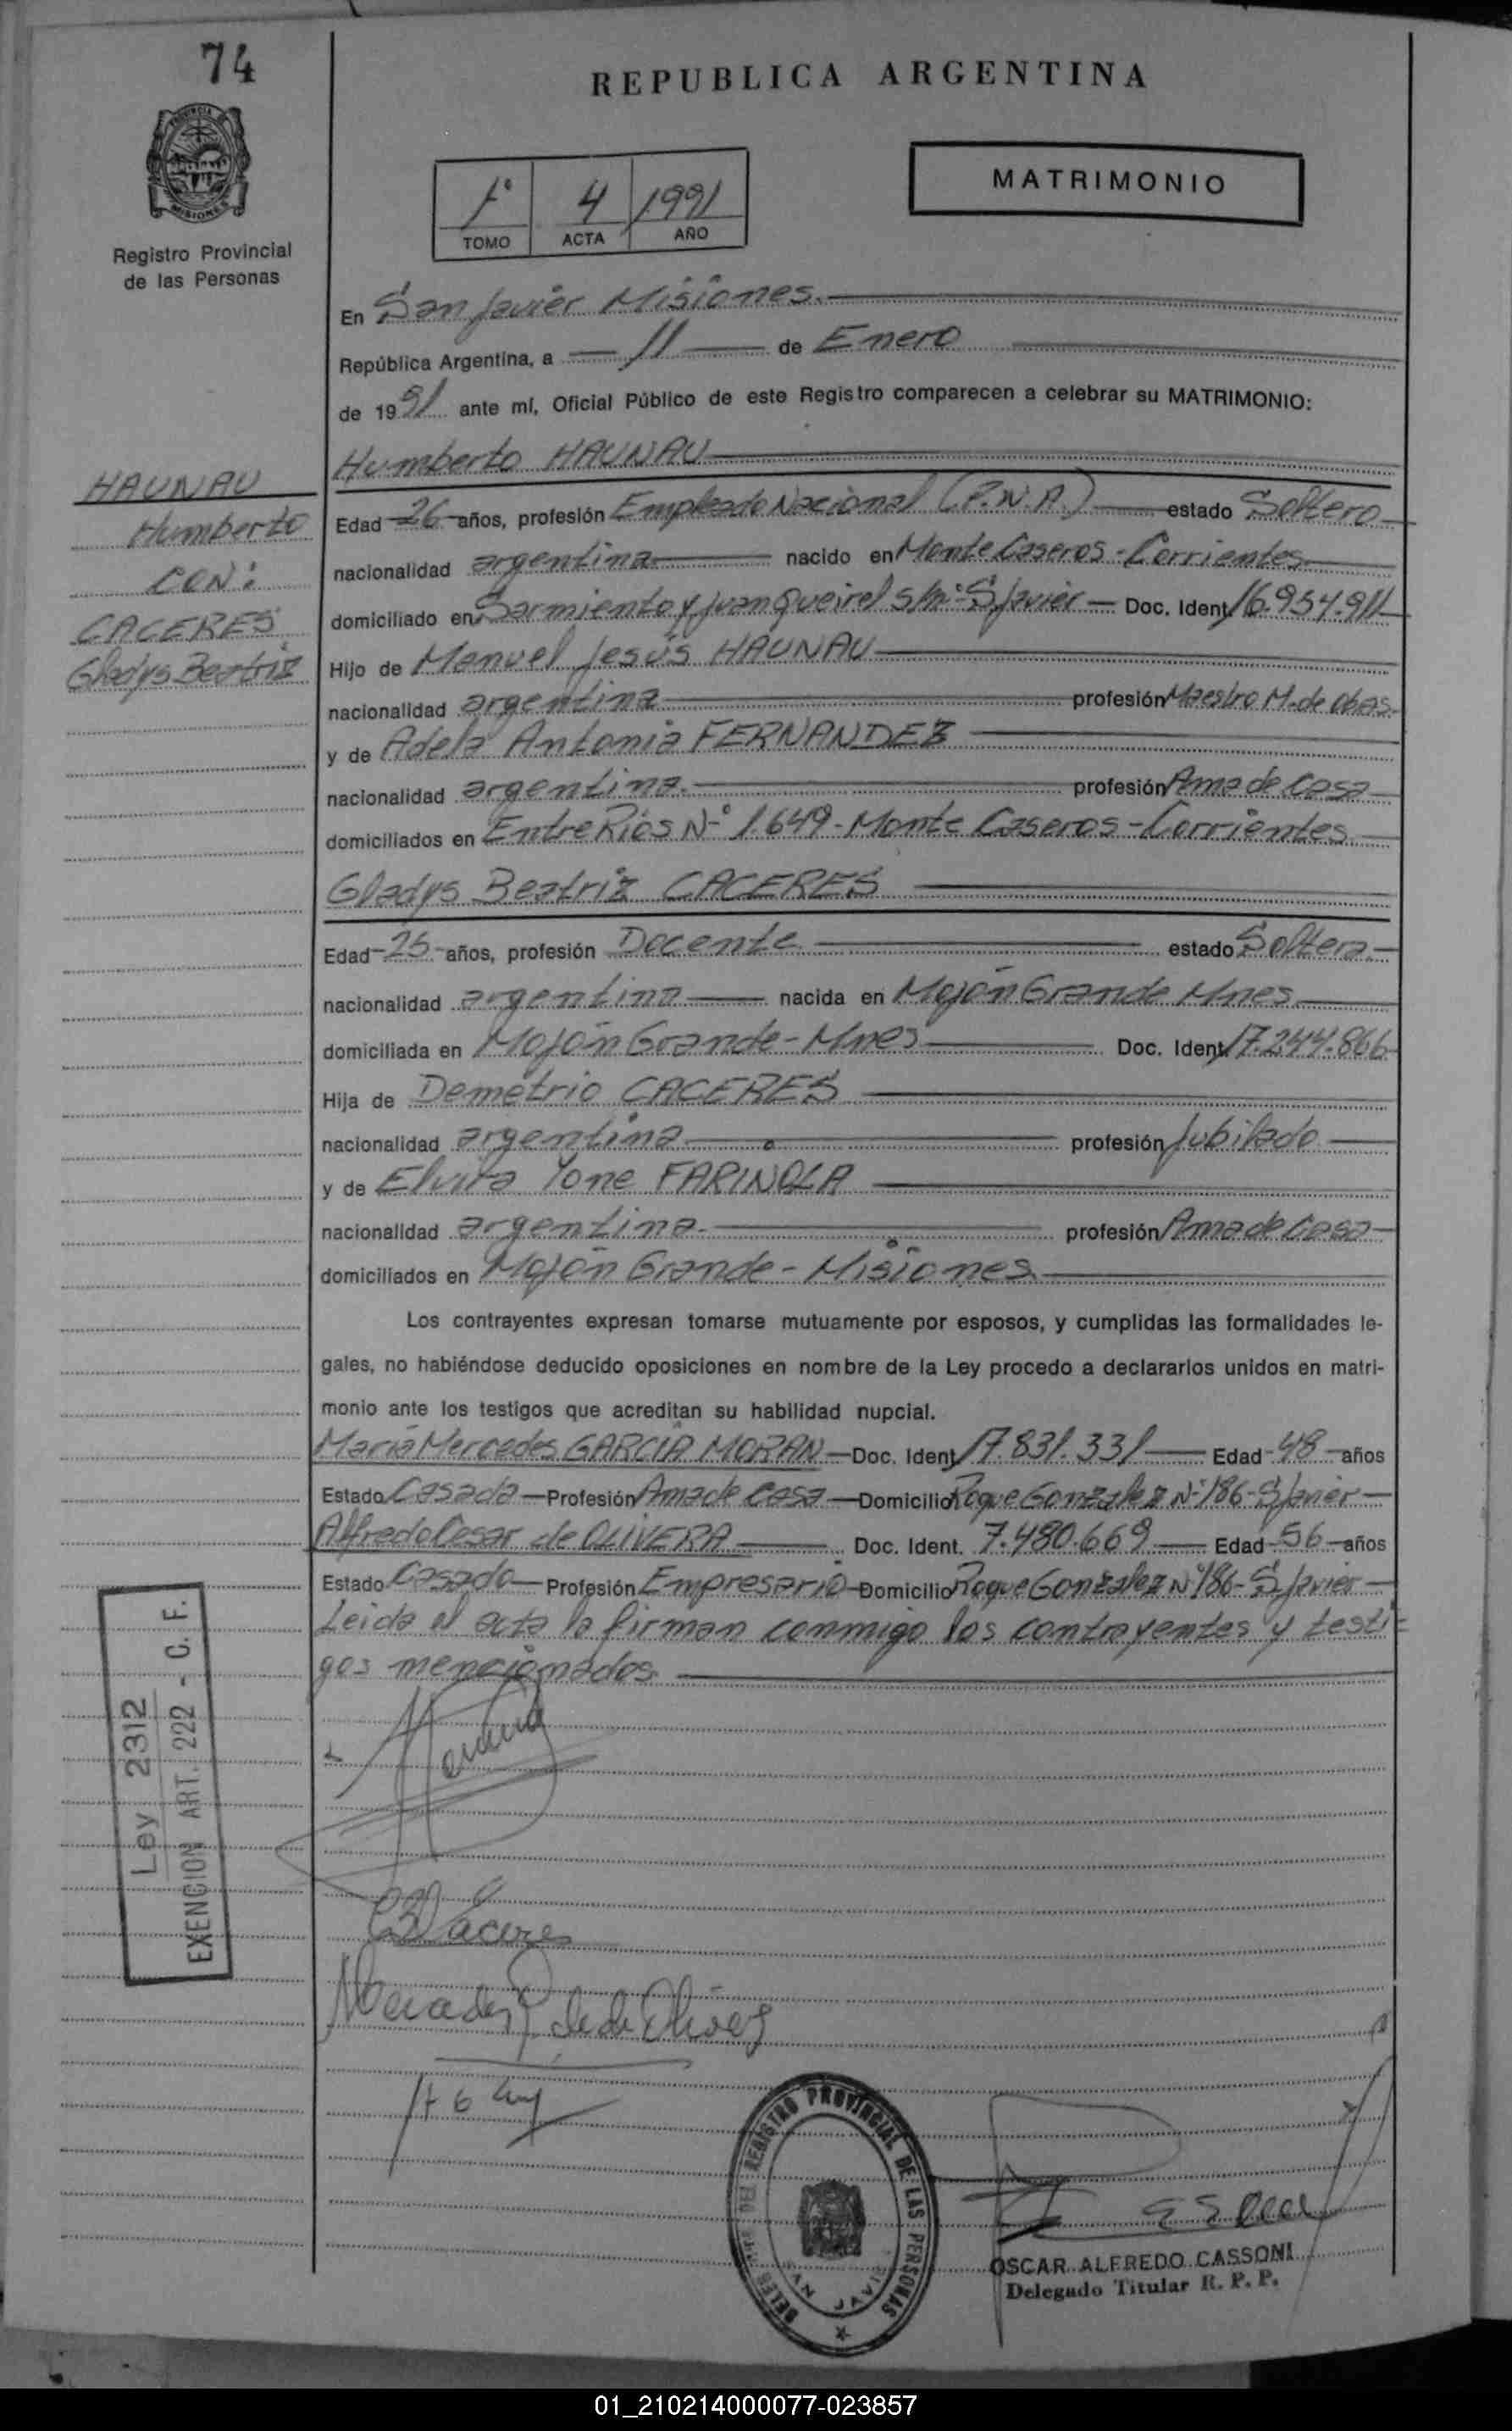 74
REPUBLICA ARGENTINA
PROVINCIA DE
MISIONES
Registro Provincial
de las Personas
1º 4 1991
TOMO ACTA AÑO
MATRIMONIO
En San Javier Misiones.
República Argentina, a 11 de Enero
de 1991 ante mí, Oficial Público de este Registro comparecen a celebrar su MATRIMONIO:
Humberto HAUNAU
HAUNAU
Humberto
CON:
CACERES
Gladys Beatriz
Edad 26 años, profesión Empleado Nacional (P.N.A.) estado Soltero
nacionalidad argentina nacido en Monte Caseros - Corrientes
domiciliado en Sarmiento y Juan Queirel s/nº S Javier Doc. Ident. 16.954.911
Hijo de Manuel Jesús HAUNAU
nacionalidad argentina profesión Maestro M. de Obras.
y de Adela Antonia FERNANDEZ
nacionalidad argentina. profesión Ama de Casa
domiciliados en Entre Rios Nº 1.649 - Monte Caseros - Corrientes
Gladys Beatriz CACERES
Edad 25 años, profesión Docente estado Soltera
nacionalidad argentina nacida en Mojón Grande Mnes
domiciliada en Mojón Grande - Mnes Doc. Ident. 17.244.866
Hija de Demetrio CACERES
nacionalidad argentina profesión Jubilado
y de Elvira Yone FARINOLA
nacionalidad argentina. profesión Ama de Casa
domiciliados en Mojón Grande - Misiones
Los contrayentes expresan tomarse mutuamente por esposos, y cumplidas las formalidades le-
gales, no habiéndose deducido oposiciones en nombre de la Ley procedo a declararlos unidos en matri-
monio ante los testigos que acreditan su habilidad nupcial.
María Mercedes GARCIA MORAN Doc. Ident. 17.831.331 Edad 48 años
Estado Casada Profesión Ama de Casa Domicilio Roque Gonzalez Nº 186 - S Javier
Alfredo Cesar de OLIVERA Doc. Ident. 7.480.669 Edad 56 años
Estado Casado Profesión Empresario Domicilio Roque Gonzalez Nº 186 - S Javier
Leida el acta la firman conmigo los contrayentes y testi-
gos mencionados.
Ley 2312
EXENCION ART. 222 - C. F.
Caceres
REGISTRO PROVINCIAL DE LAS PERSONAS
SAN JAVIER
OSCAR ALFREDO CASSONI
Delegado Titular R. P. P.
01_210214000077-023857